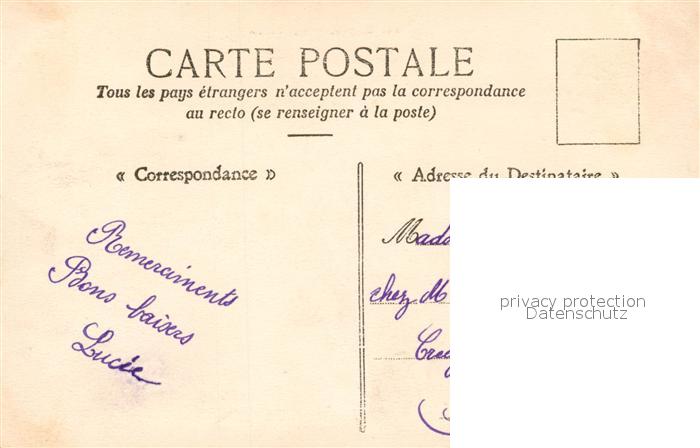 CARTE POSTALE
Tous les pays étrangers n'acceptent pas la correspondance
au recto (se renseigner à la poste)
« Correspondance »
« Adresse du Destinataire »
Remerciments
Bons baisers
Lucie
chez M
privacy protection
Datenschutz